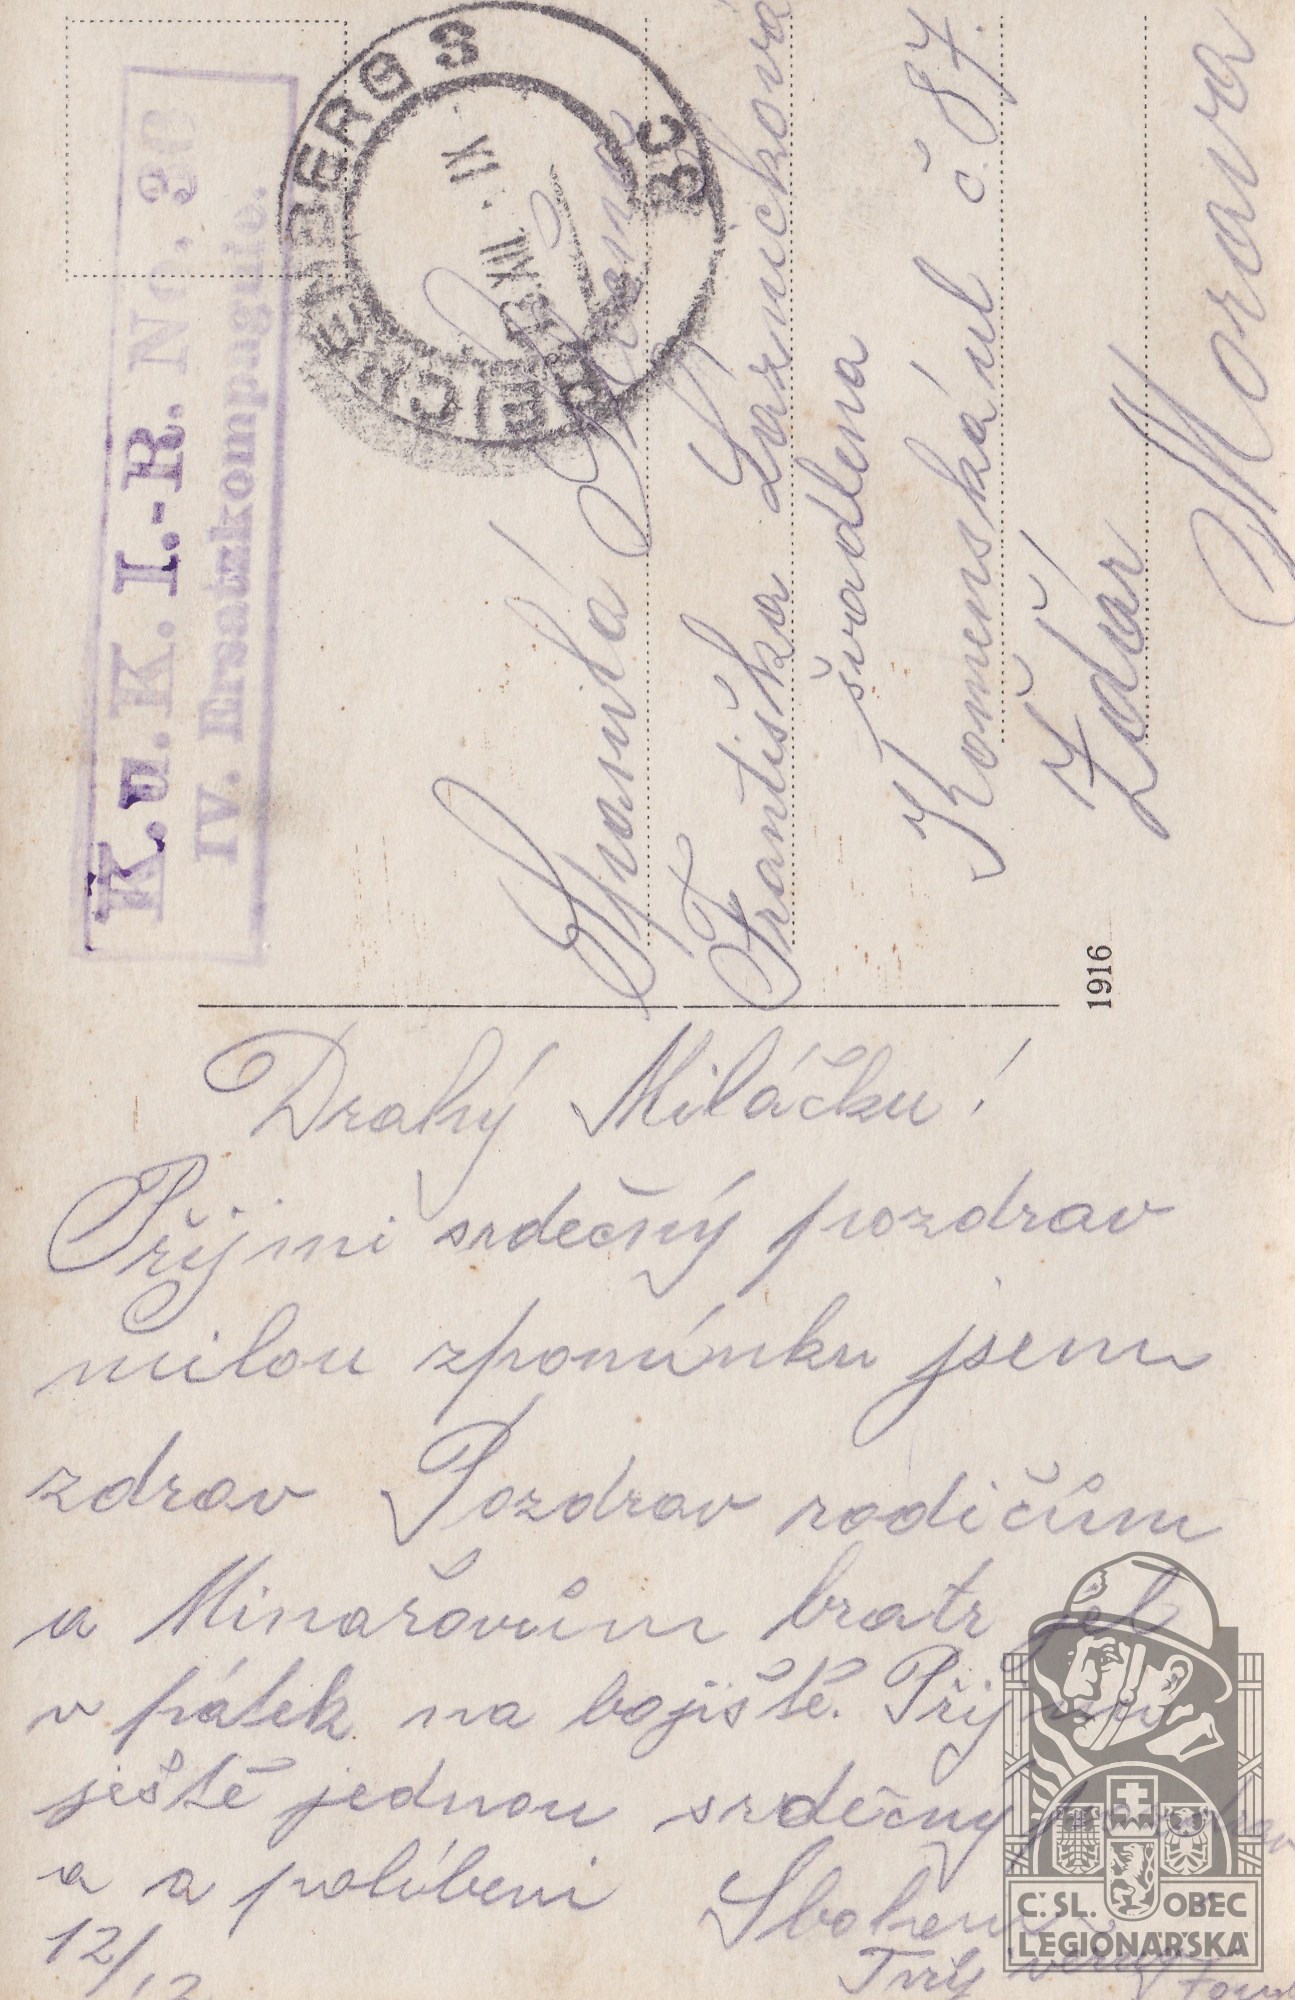 K. u. K. I.-R. No.
IV. Ersatzkompagnie.
REICHENBERG 3
3C
XII. XI
Spanilá Slečna
Františka Larnickova
švadlena
Komenská ul č 87.
Žďár
Morava
1916
Drahý Miláčku!
Přijmi srdečný pozdrav
milou zpomínku jsem
zdrav Pozdrav rodičům
u Minařovům bratr jel
v pátek na bojiště. Přijmi
ještě jednou srdečný pozdrav
a a políbeni
12/12
Sbohem
Tvůj věrný
Č. SL. OBEC
LEGIONÁŘSKÁ